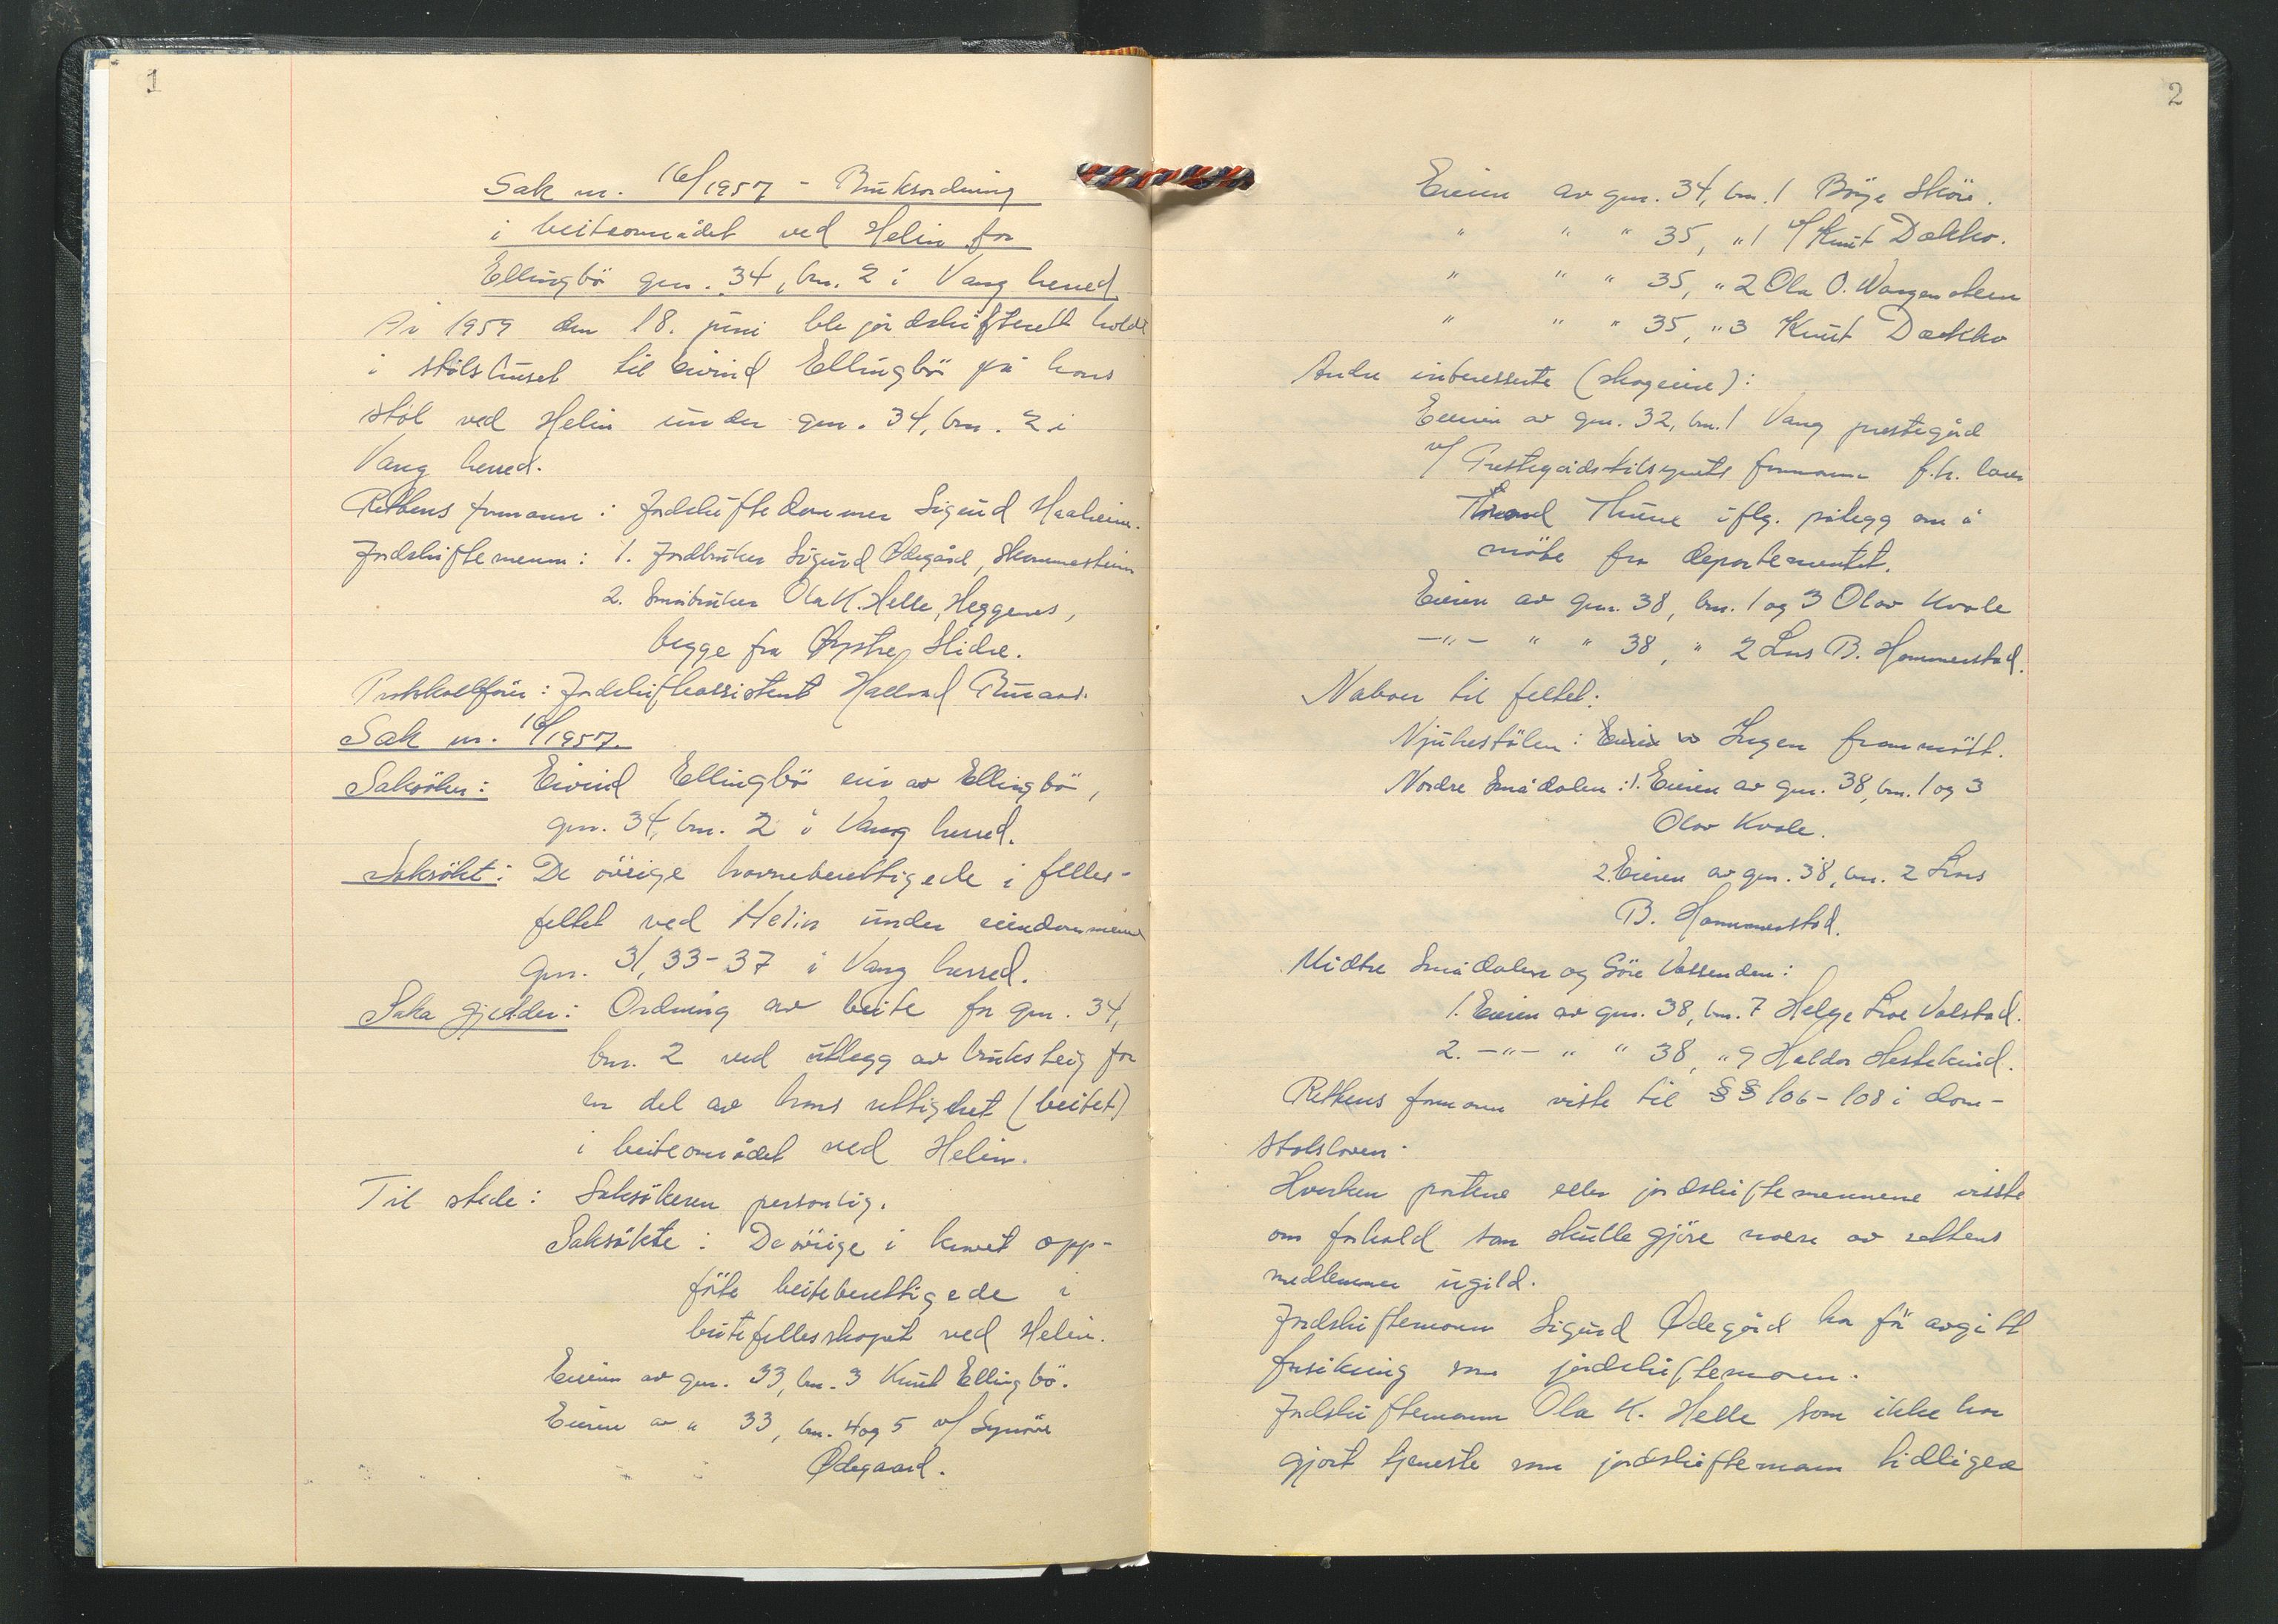 1
Sak nr. 16/1957 - Bruksordning
i beiteområdet ved Helin for
Ellingbö gnr. 34, bnr. 2 i Vang herred
År 1959 den 18. juni ble jordskifterett holdt
i stölshuset til Eivind Ellingbö på hans
stöl ved Helin under gnr. 34, bnr. 2 i
Vang herred.
Rettens formann: Jordskiftedommer Sigurd Haaheim.
Jordskiftemenn: 1. Jordbruker Sigurd Ødegård, Skammestein
2. Småbruker Ola K. Helle, Heggenes,
begge fra Øystre Slidre.
Protokollförer: Jordskifteassistent Hallvard
Sak nr. 16/1957.
Saksöker: Eivind Ellingbö eier av Ellingbö,
gnr. 34, bnr. 2 i Vang herred.
Saksökt: De övrige havneberettigede i felles-
feltet ved Helin under eiendommene
gnr. 31, 33-37 i Vang herred.
Saka gjelder: Ordning av beite for gnr. 34,
bnr. 2 ved utlegg av bruksteig for
en del av hans rettighet (beitet)
i beiteområdet ved Helin.
Til stede: Saksökeren personlig.
Saksökte: De övrige i kravet opp-
förte beiteberettigede i
beitefellesskapet ved Helin.
Eieren av gnr. 33, bnr. 3 Knut Ellingbö.
Eieren av " 33, bnr. 4 og 5 v/ Synöve
Ødegaard.
2
Eieren av gnr. 34, bnr. 1 Börje Sköre.
" " " 35, " 1 v/ Knut Dokko.
" " " 35, " 2 Ola O. Wangensteen
" " " 35, " 3 Knut Dokko
Andre interesserte (skogeiere):
Eieren av gnr. 32, bnr. 1 Vang prestegård
v/ Prestegårdstilsynets formann f.h.
Thune iflg. pålegg om å
möte fra departementet.
Eieren av gnr. 38, bnr. 1 og 3 Olav Kvale
-"- " " 38, " 2 Lars B. Hammerstad.
Naboer til feltet:
Njukestölen: Ingen frammött.
Nordre Smådalen: 1. Eieren av gnr. 38, bnr. 1 og 3
Olav Kvale.
2. Eieren av gnr. 38, bnr. 2 Lars
B. Hammerstad.
Midtre Smådalen og Söre Vassenden:
1. Eieren av gnr. 38, bnr. 7 Helge Loe Valstad.
2. -"- " " 38, " 9 Haldor Hestekind.
Rettens formann viste til §§ 106-108 i dom-
stolsloven.
Hverken partene eller jordskiftemennene visste
om forhold som skulle gjöre noen av rettens
medlemmer ugild.
Jordskiftemann Sigurd Ødegård har för avgitt
forsikring som jordskiftemann.
Jordskiftemann Ola K. Helle som ikke har
gjort tjeneste som jordskiftemann tidligere